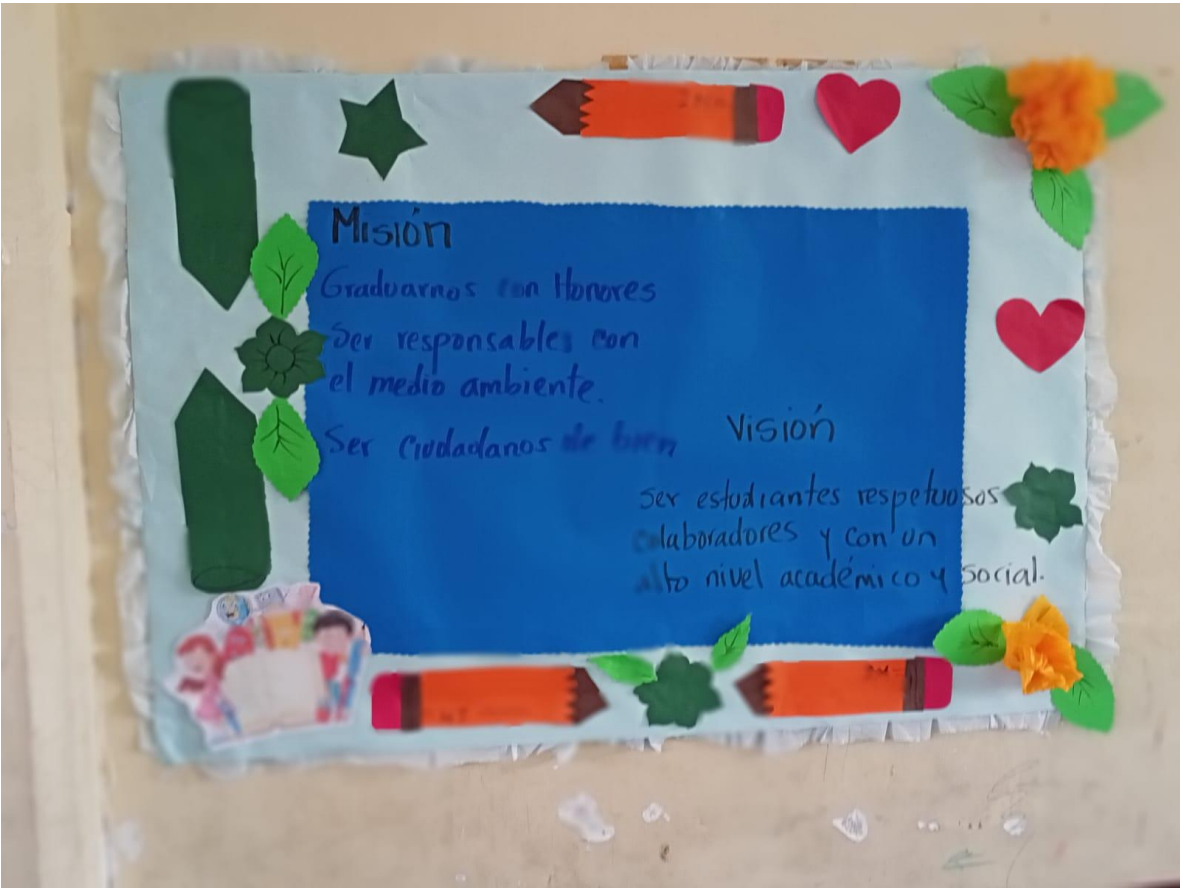 Misión
Graduarnos con Honores
Ser responsables con
el medio ambiente.
Ser ciudadanos de bien
Visión
Ser estudiantes respetuosos
colaboradores y con un
alto nivel académico y social.